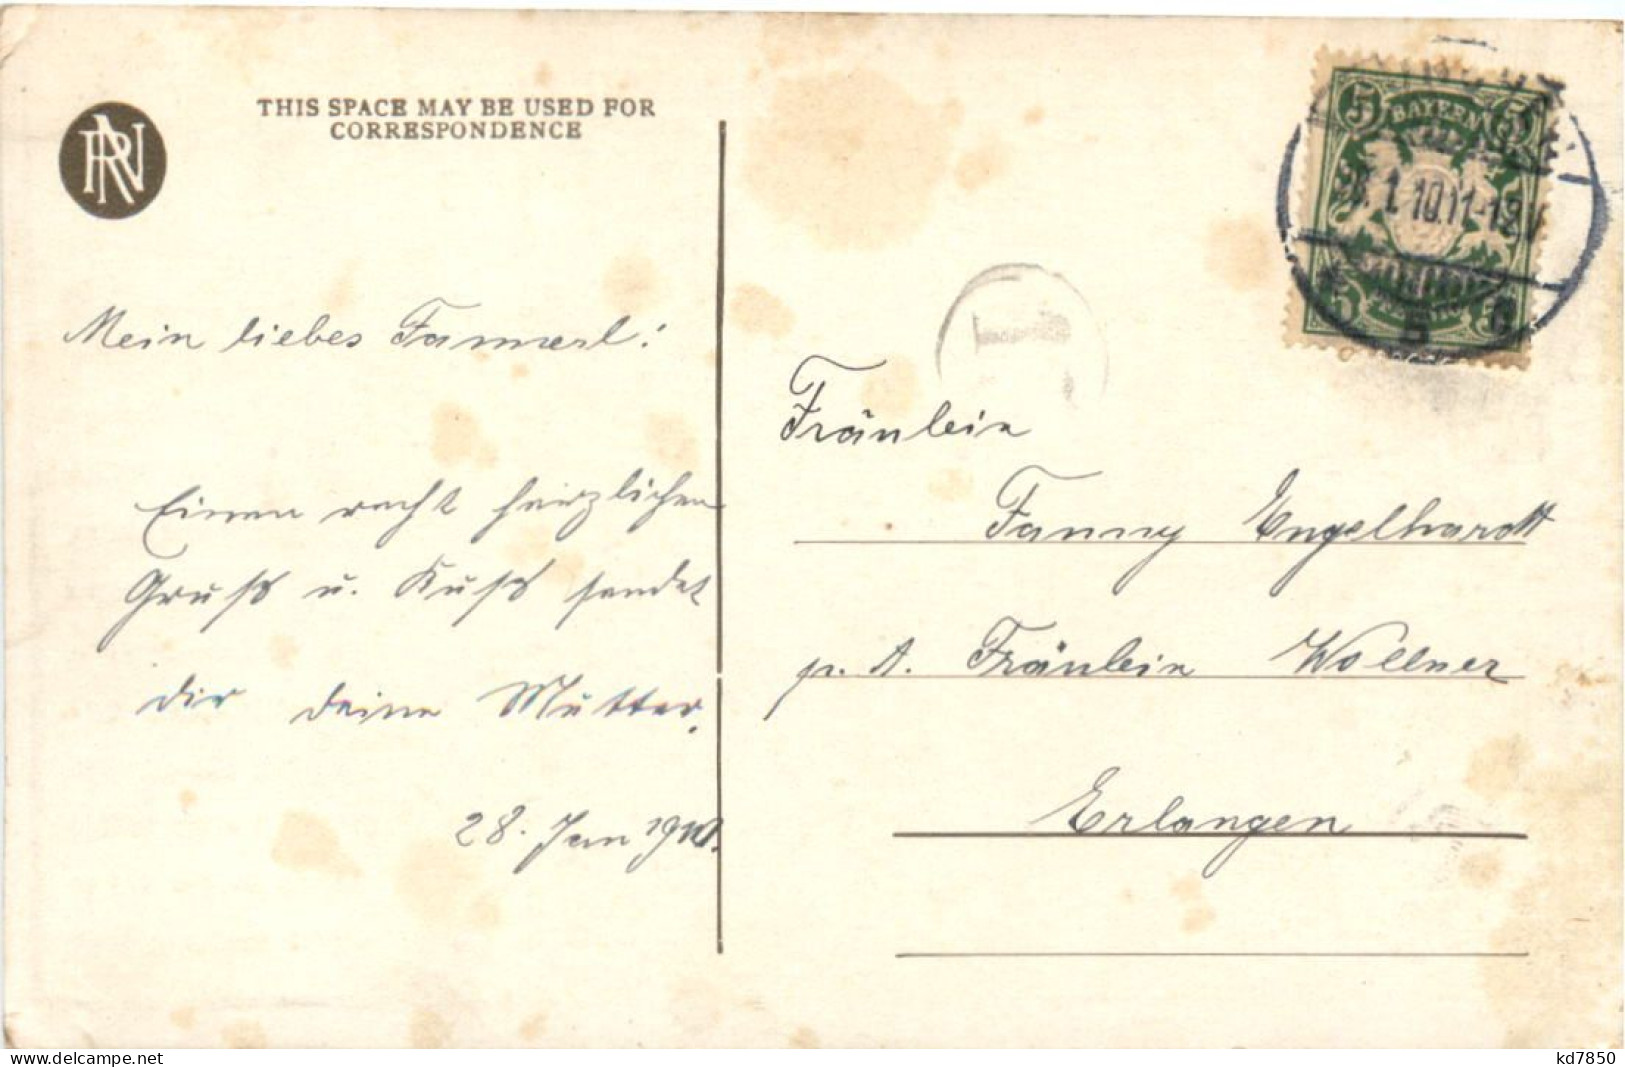 THIS SPACE MAY BE USED FOR
CORRESPONDENCE
Mein liebes Fannerl!
Einen recht herzlichen
Gruß u. Kuß sendet
dir deine Mutter.
28. Jan 1910.
5 BAYERN 5
28. 1. 10. 11-12 V
Fräulein
Fanny Engelhardt
p. A. Fräulein Wollner
Erlangen
delcampe.net
kd7850